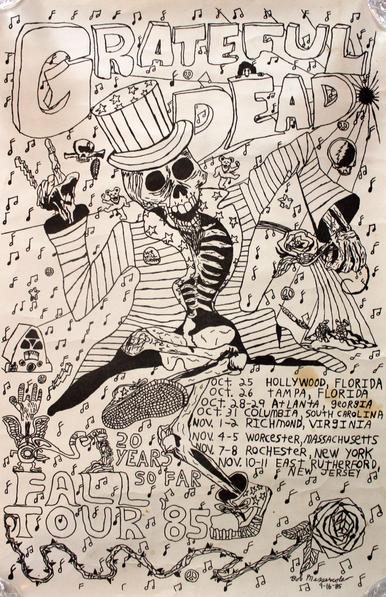 GRATEFUL
DEAD
OCT. 25 HOLLYWOOD, FLORIDA
OCT. 26 TAMPA, FLORIDA
OCT. 28-29 ATLANTA, GEORGIA
OCT 31 COLUMBIA, SOUTH CAROLINA
NOV. 1-2 RICHMOND, VIRGINIA
NOV. 4-5 WORCESTER, MASSACHUSETTS
NOV. 7-8 ROCHESTER, NEW YORK
NOV. 10-11 EAST RUTHERFORD,
NEW JERSEY
20
YEARS
SO FAR
FALL
TOUR '85
9-16-85